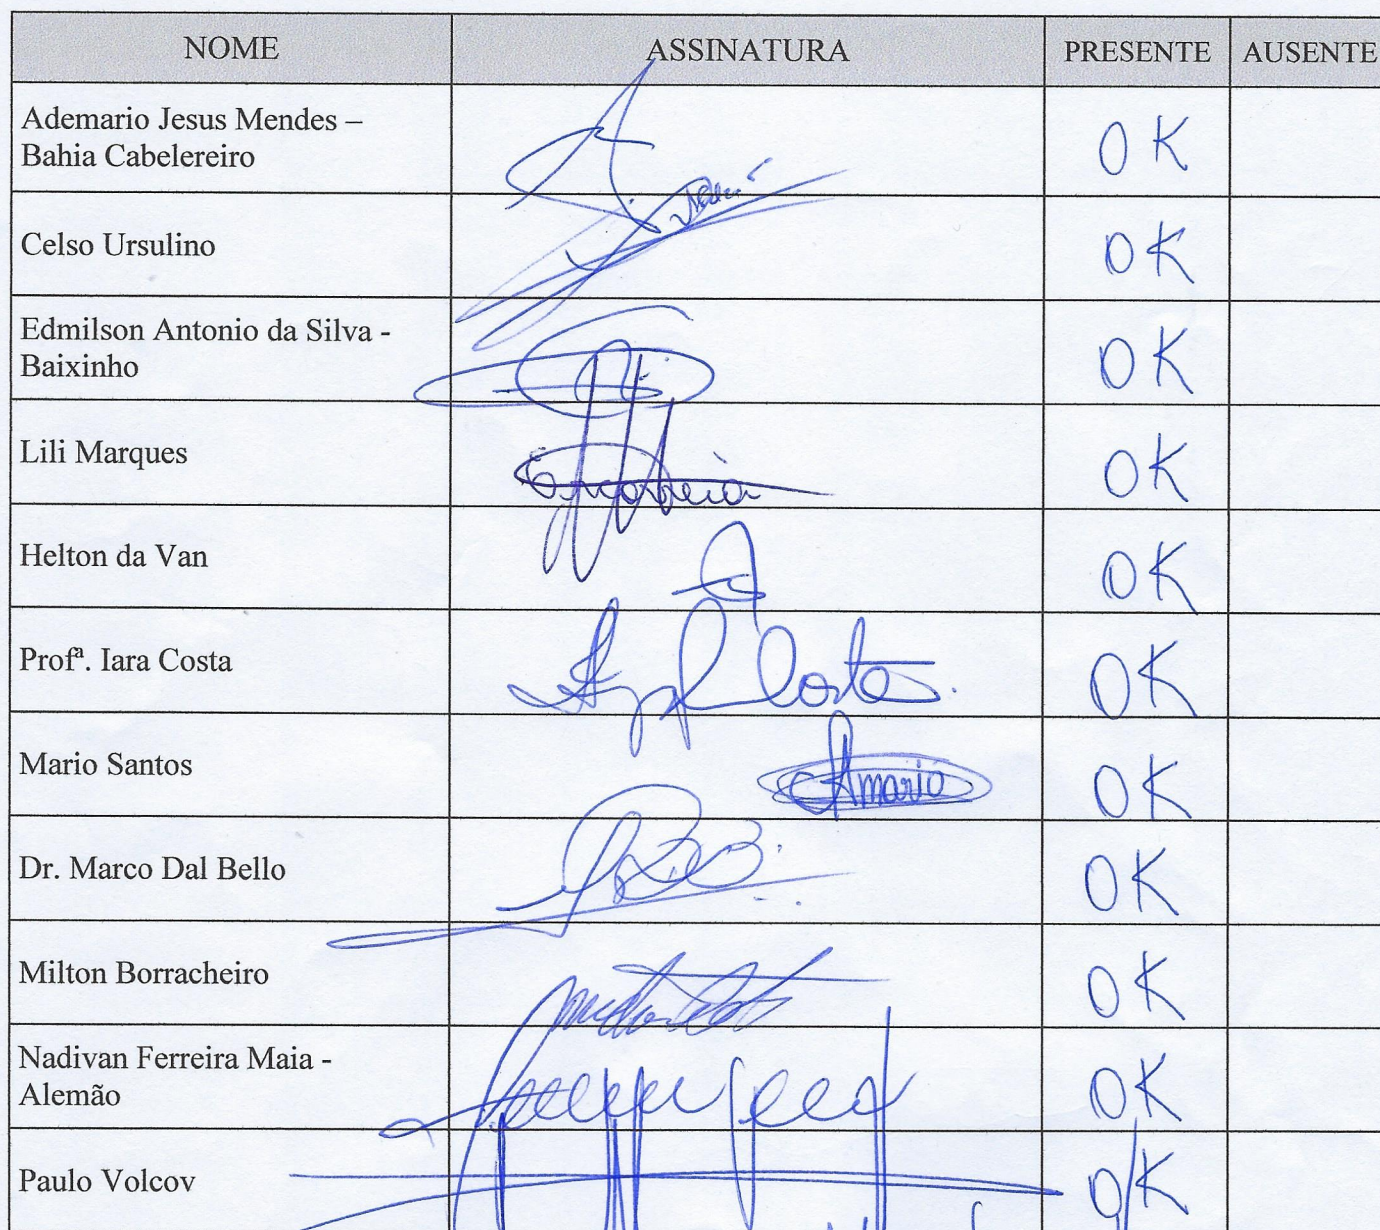 NOME ASSINATURA PRESENTE AUSENTE
Ademario Jesus Mendes –
Bahia Cabelereiro
OK
Celso Ursulino OK
Edmilson Antonio da Silva -
Baixinho
OK
Lili Marques OK
Helton da Van OK
Profª. Iara Costa Costa OK
Mario Santos Amario OK
Dr. Marco Dal Bello OK
Milton Borracheiro OK
Nadivan Ferreira Maia -
Alemão
OK
Paulo Volcov OK